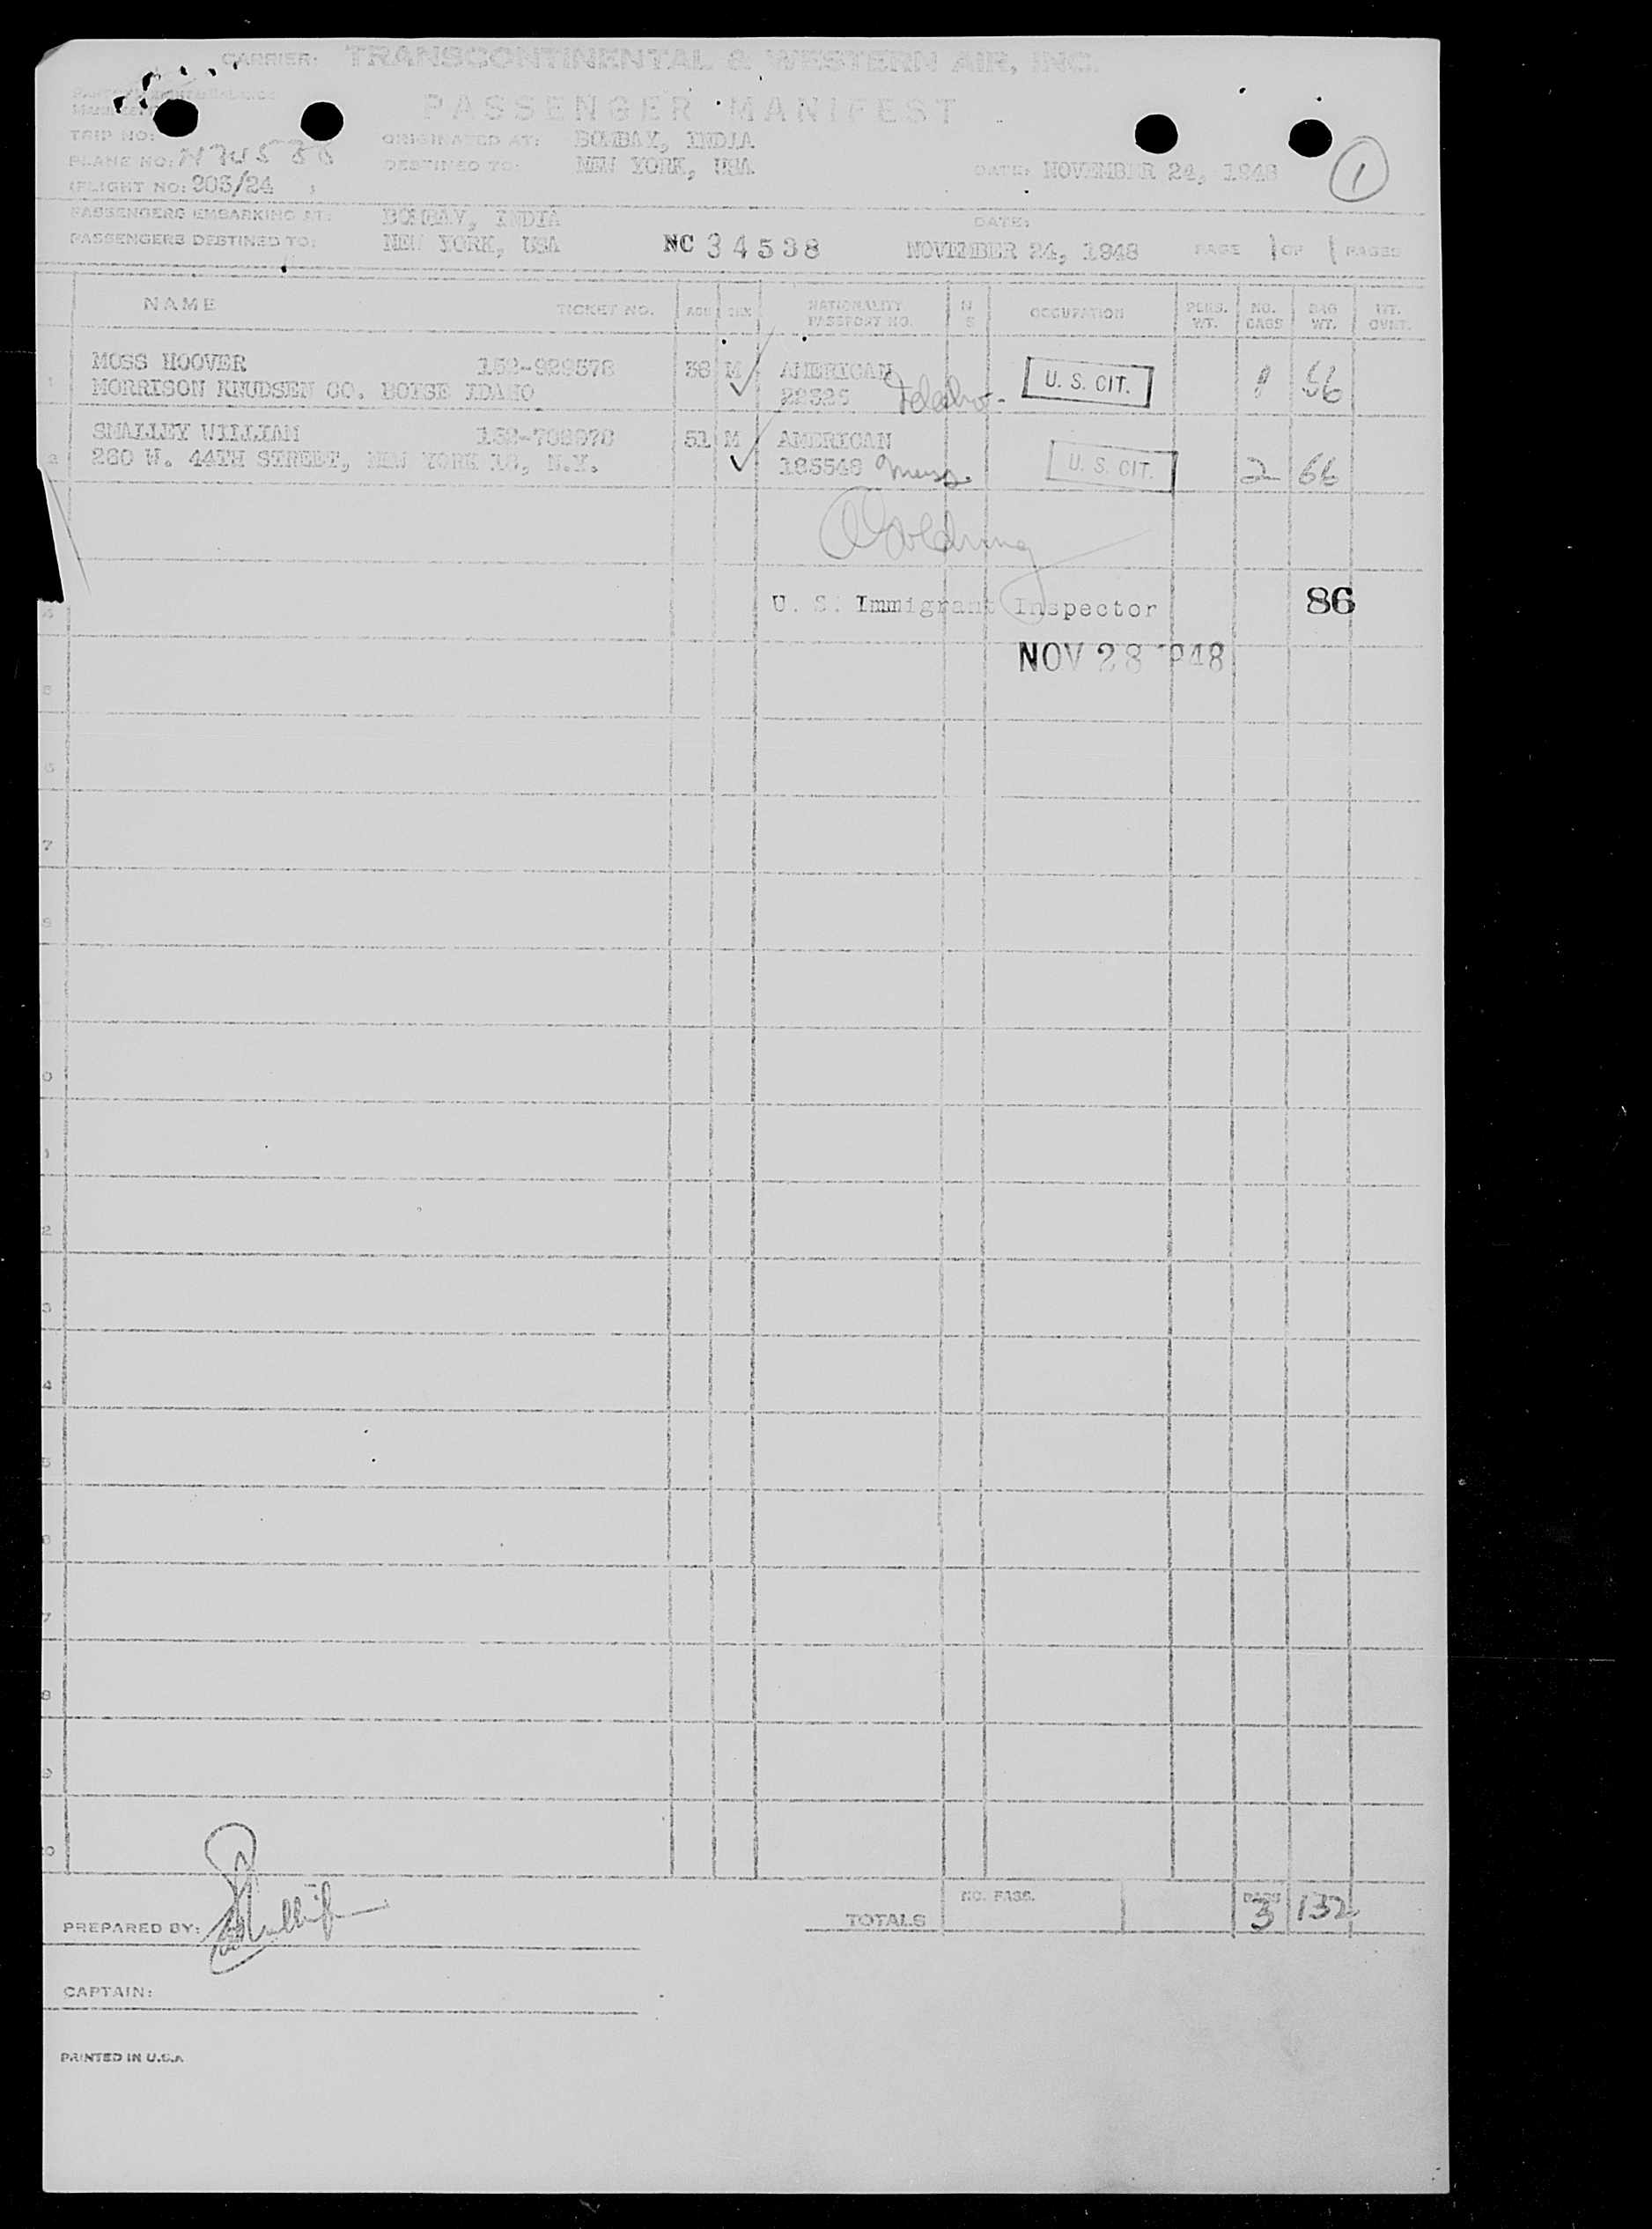 CARRIER: TRANSCONTINENTAL & WESTERN AIR, INC.
PASSENGER MANIFEST
TRIP NO:
ORIGINATED AT: BOMBAY, INDIA
PLANE NO:
DESTINED TO: NEW YORK, USA
DATE: NOVEMBER 24, 1948
1
(FLIGHT NO: 203/24 )
PASSENGERS EMBARKING AT: BOMBAY, INDIA
DATE:
PASSENGERS DESTINED TO: NEW YORK, USA
NC 34538
NOVEMBER 24, 1948
PAGE 1 OF 1 PAGES
NAME TICKET NO. AGE SEX NATIONALITY PASSPORT NO. OCCUPATION PERS. WT. NO. BAGS BAG WT. WT. OVNT.
1 MOSS HOOVER 152-929578 38 M AMERICAN U. S. CIT. 1 66
MORRISON KNUDSEN CO. BOISE IDAHO 22525 Idaho.
2 SMALLEY WILLIAM 51 M AMERICAN U. S. CIT. 2 66
260 W. 44TH STREET, NEW YORK 18, N.Y. 185548 Mass.
U. S. Immigrant Inspector
86
NOV 28 1948
4
5
6
7
8
0
1
2
3
4
5
6
7
8
9
0
PREPARED BY:
TOTALS NO. PASS. BAGS 3 132
CAPTAIN:
PRINTED IN U.S.A